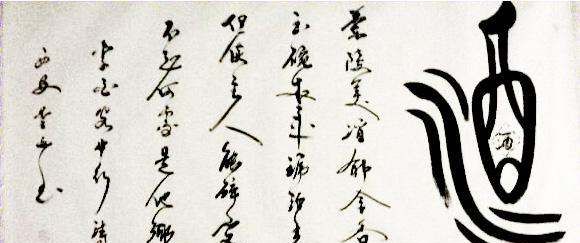 酒
酒
蘭陵美酒郁金香
玉碗盛来琥珀光
但使主人能醉客
不知何處是他鄉
李白客中行詩
西安
书